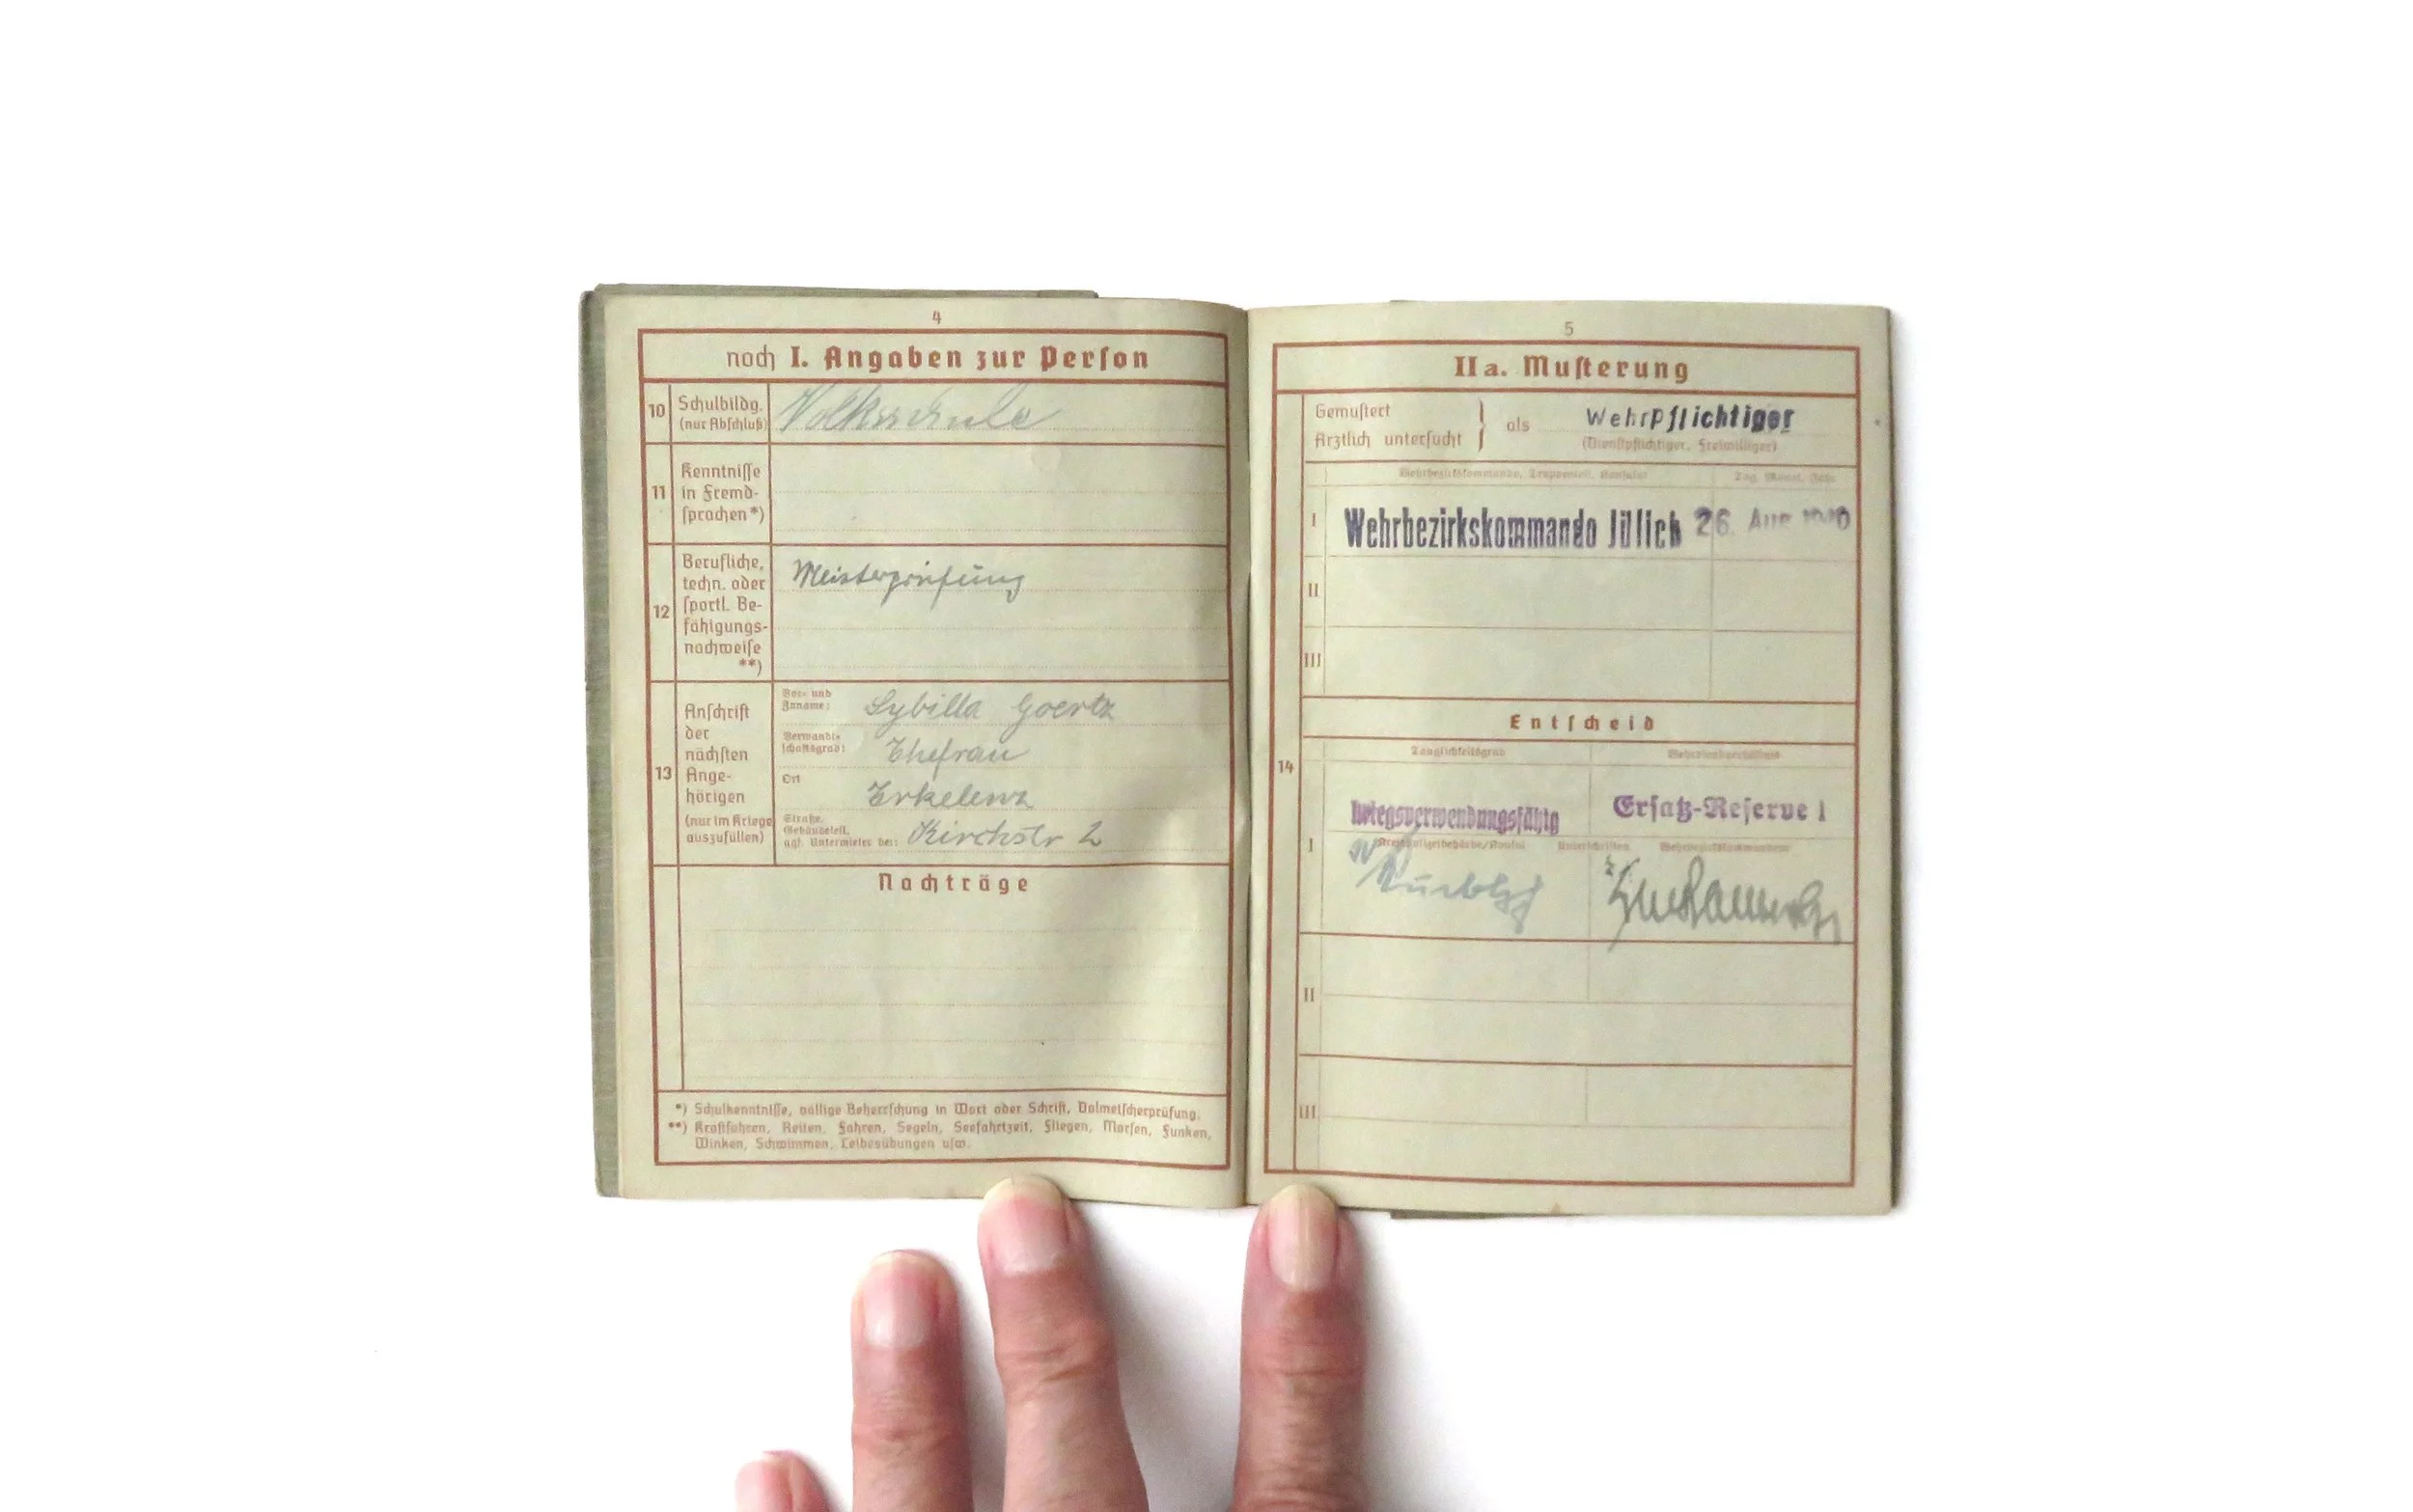 4
noch I. Angaben zur Person
10 Schulbildg. (nur Abschluß) Volksschule
11 Kenntnisse in Fremd-sprachen *)
12 Berufliche, techn. oder sportl. Be-fähigungs-nachweise **) Meisterprüfung
13 Anschrift der nächsten Ange-hörigen (nur im Kriege auszufüllen)
Vor- und Zuname: Sybilla Goertz
Verwandt-schaftsgrad: Ehefrau
Ort Erkelenz
Straße, Gebäudeteil, ggf. Untermieter bei: Kirchstr 2
Nachträge
*) Schulkenntnisse, völlige Beherrschung in Wort oder Schrift, Dolmetscherprüfung.
**) Kraftfahren, Reiten, Fahren, Segeln, Seefahrtzeit, Fliegen, Morsen, Funken,
Winken, Schwimmen, Leibesübungen usw.
5
IIa. Musterung
Gemustert
Ärztlich untersucht } als Wehrpflichtiger
(Dienstpflichtiger, Freiwilliger)
Wehrbezirkskommando, Truppenteil, Konsulat Tag, Monat, Jahr
I Wehrbezirkskommando Jülich 26. Aug 1940
II
III
Entscheid
14
Tauglichkeitsgrad Wehrdienstverhältnis
kriegsverwendungsfähig Ersatz-Reserve I
I Kreispolizeibehörde/Konsul Unterschriften Wehrbezirkskommandeur
II
III